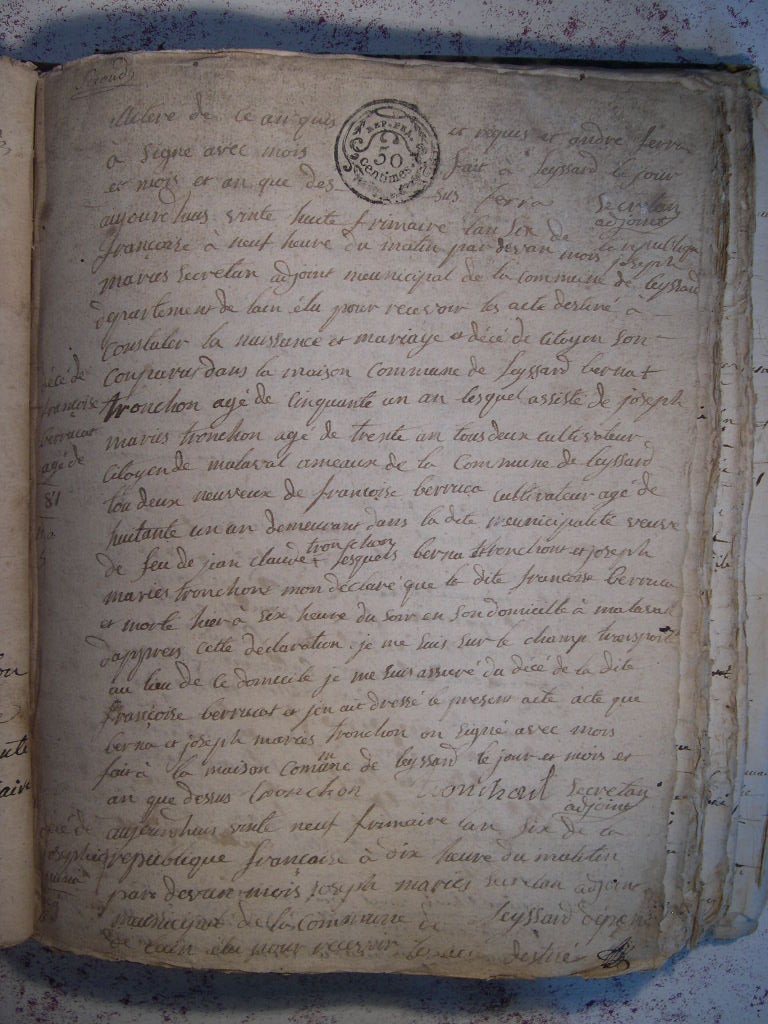 Second
de ce an que et requis et andre ferra
à signé avec mois fait à leyssard le jour
REP. FRA.
50
centimes
et mois et an que des sus ferra Secretan
adjoint
aujourdhuis vinte huite frimaire lan six de la republique
françoise à neuf heure du matin par devan mois joseph
maries Secretan adjoint meunicipal de la commune de leyssard
departement de lain élu pour recevoir les acte destiné à
Constater la naissance et mariage et décé de Citoyen Son
Conparus dans la maison Commune de leyssard berna
tronchon agé de Cinquante un an lesquel assisté de joseph
maries tronchon agé de trente an tous deux cultivateur
Citoyen de malaval ameaux de la Commune de leyssard
tou deux neuveux de françoise berruca cultivateur agé de
huitante un an demeurant dans la dite meunicipalité veuve
de feu de jean claude tronchon lesquels berna tronchont et joseph
maries tronchont mon déclaré que la dite françoise berruca
et morte hier à six heure du soir en son domicille à malaval
dapprers cette déclaration je me suis sur le champ transporté
au lieu de ce domicile je me suis assuré du décé de la dite
françoise berrucat et jen ait dressé le present acte acte que
berna et joseph maries tronchon on signé avec mois
fait à la maison Commune de leyssard le jour et mois et
an que dessus tronchon tronchont Secretan
adjoint
aujourdhuis vinte neuf frimaire lan six de la
republique françoise à dix heure du matin
par devan mois joseph maries secretan adjoint
municipal de la Commune de leyssard depar
de lain élu pour recevoir les acte destiné
décé de
françoise
berrucat
agé de
81
décé de